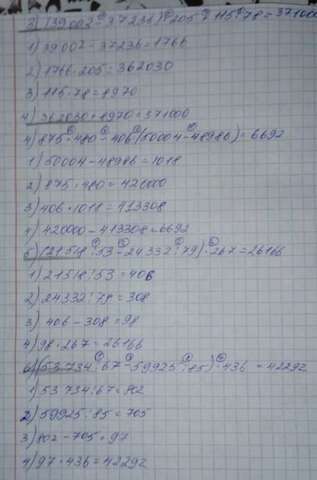 3) (39 002 - 37236) · 205 + 115 · 78 = 371000
1) 39 002 - 37236 = 1766
2) 1766 · 205 = 362030
3) 115 · 78 = 8970
4) 362030 + 8970 = 371000
4) 875 · 480 - 406 · (50004 - 48986) = 6692
1) 50004 - 48986 = 1018
2) 875 · 480 = 420000
3) 406 · 1018 = 413308
4) 420000 - 413308 = 6692
5) (21518 : 53 - 24332 : 79) · 267 = 26166
1) 21518 : 53 = 406
2) 24332 : 79 = 308
3) 406 - 308 = 98
4) 98 · 267 = 26166
6) (53 734 : 67 - 59925 : 85) · 436 = 42292
1) 53 734 : 67 = 802
2) 59925 : 85 = 705
3) 802 - 705 = 97
4) 97 · 436 = 42292